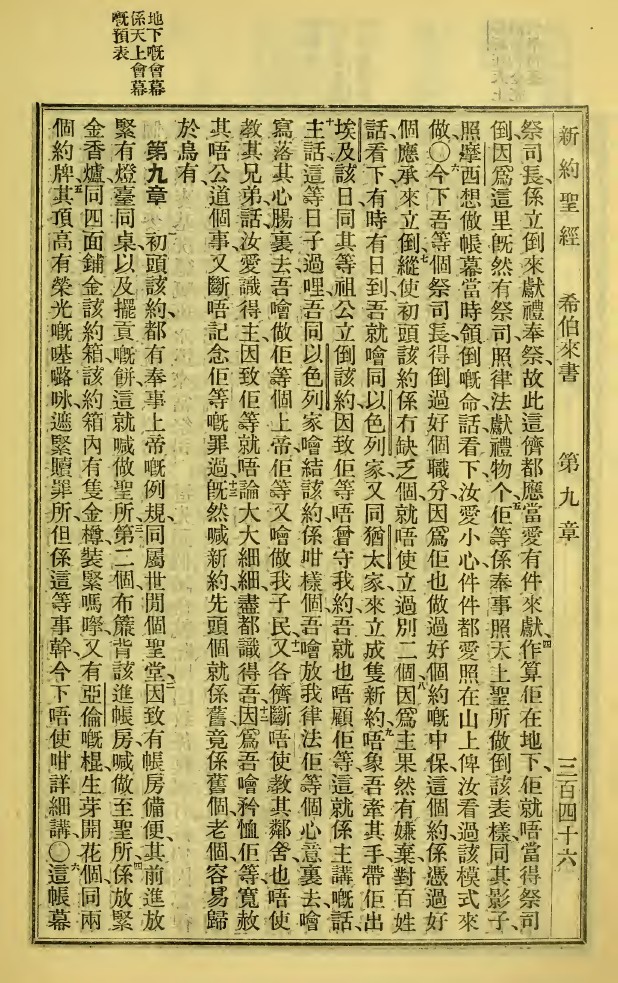 地下嘅會幕
係天上會幕
嘅預表
新約聖經 希伯來書 第九章 三百四十六
祭司長、係立倒來獻禮奉祭、故此這儕都應當愛有件來獻、四作算佢在地下、佢就唔當得祭司、
倒、因爲這里既然有祭司、照律法獻禮物个、五佢等係奉事照天上聖所做倒該表樣、同其影子、
照摩西想做帳幕當時、領倒嘅命話、看下、汝愛小心、件件都愛照在山上俾汝看過該模式來
做、〇六今下吾等個祭司長、得倒過好個職分、因爲佢也做過好個約嘅中保、這個約係憑過好
個應承來立倒、七縱使初頭該約係冇缺乏個、就唔使立過別二個、八因爲主果然有嫌棄、對百姓
話、看下、有時有日到、吾就噲同以色列家、又同猶太家、來立成隻新約、九唔象吾牽其手帶佢出
埃及該日、同其等祖公立倒該約、因致佢等唔曾守我約、吾就也唔顧佢等、這就係主講嘅話、
十主話、這等日子過哩、吾同以色列家噲結該約、係咁樣個、吾噲放我律法佢等個心意裏去、噲
寫落其心腸裏去、吾噲做佢等個上帝、佢等又噲做我子民、十一又各儕斷唔使教其鄰舍、也唔使
教其兄弟、話、汝愛識得主、因致佢等就唔論大大細細、盡都識得吾、十二因爲吾噲矜恤佢等、寬赦
其唔公道個事、又斷唔記念佢等嘅罪過、十三既然喊新約、先頭個就係舊、竟係舊個老個、容易歸
於烏有、
第九章 一初頭該約、都有奉事上帝嘅例規、同屬世間個聖堂、二因致有帳房備便、其前進放
緊有燈臺、同桌、以及擺貢嘅餅、這就喊做聖所、三第二個布簾背該進帳房、喊做至聖所、四係放緊
金香爐、同四面鋪金該約箱、該約箱內有隻金樽、裝緊嗎嗱、又有亞倫嘅棍、生芽開花個、同兩
個約牌、五其頂高有榮光嘅𠼻嚕𠲖、遮緊贖罪所、但係這等事幹、今下唔使咁詳細講、〇六這帳幕